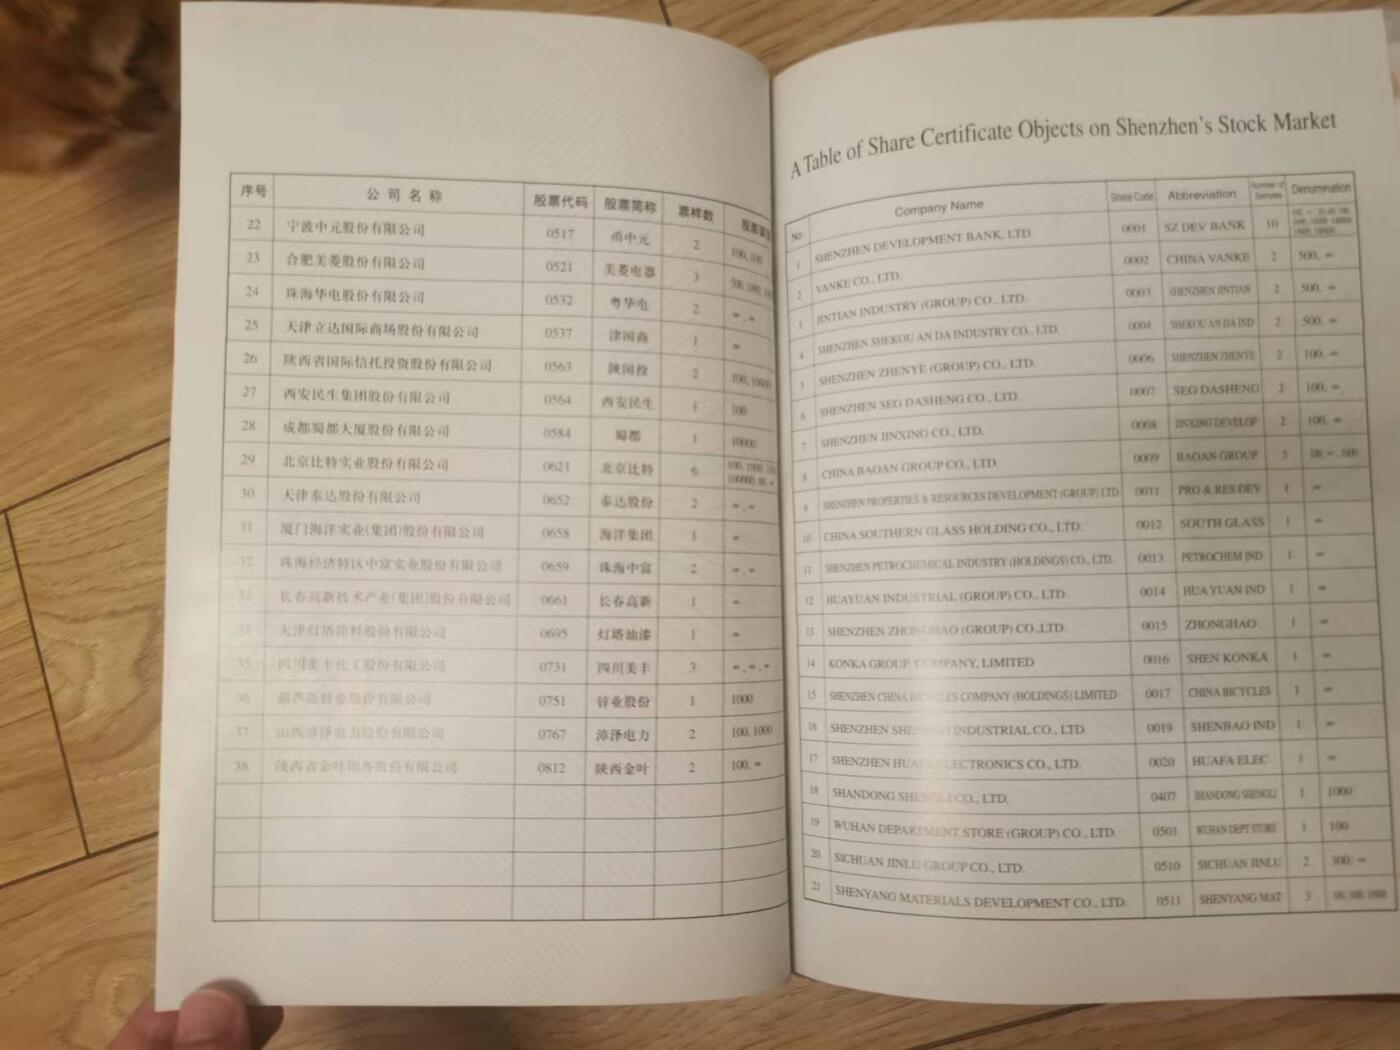 序号 公司名称 股票代码 股票简称 票样数
22 宁波中元股份有限公司 0517 甬中元 2 100, 100
23 合肥美菱股份有限公司 0521 美菱电器 3 500, 1000,
24 珠海华电股份有限公司 0532 粤华电 2 ∞, ∞
25 天津立达国际商场股份有限公司 0537 津国商 1 ∞
26 陕西省国际信托投资股份有限公司 0563 陕国投 2 100, 10000
27 西安民生集团股份有限公司 0564 西安民生 1 100
28 成都蜀都大厦股份有限公司 0584 蜀都 1 10000
29 北京比特实业股份有限公司 0621 北京比特 6 100, 1000,
100000,
30 天津泰达股份有限公司 0652 泰达股份 2 ∞, ∞
31 厦门海洋实业(集团)股份有限公司 0658 海洋集团 1 ∞
32 珠海经济特区中富实业股份有限公司 0659 珠海中富 2 ∞, ∞
33 长春高新技术产业(集团)股份有限公司 0661 长春高新 1 ∞
34 天津灯塔涂料股份有限公司 0695 灯塔油漆 1 ∞
35 四川美丰化工股份有限公司 0731 四川美丰 3 ∞, ∞, ∞
36 葫芦岛锌业股份有限公司 0751 锌业股份 1 1000
37 山西漳泽电力股份有限公司 0767 漳泽电力 2 100, 1000
38 陕西省金叶印务股份有限公司 0812 陕西金叶 2 100, ∞
A Table of Share Certificate Objects on Shenzhen's Stock Market
No. Company Name Share Code Abbreviation Number of Samples Denomination
1 SHENZHEN DEVELOPMENT BANK, LTD. 0001 SZ DEV BANK 10
2 VANKE CO., LTD. 0002 CHINA VANKE 2 500, ∞
3 JINTIAN INDUSTRY (GROUP) CO., LTD. 0003 SHENZHEN JINTIAN 2 500, ∞
4 SHENZHEN SHEKOU AN DA INDUSTRY CO., LTD. 0004 SHEKOU AN DA IND 2 500, ∞
5 SHENZHEN ZHENYE (GROUP) CO., LTD. 0006 SHENZHEN ZHENYE 2 100, ∞
6 SHENZHEN SEG DASHENG CO., LTD. 0007 SEG DASHENG 2 100, ∞
7 SHENZHEN JINXING CO., LTD. 0008 JINXING DEVELOP 2 100, ∞
8 CHINA BAOAN GROUP CO., LTD. 0009 BAOAN GROUP 3 100, ∞, 1000
9 SHENZHEN PROPERTIES & RESOURCES DEVELOPMENT (GROUP) LTD 0011 PRO & RES DEV 1 ∞
10 CHINA SOUTHERN GLASS HOLDING CO., LTD. 0012 SOUTH GLASS 1 ∞
11 SHENZHEN PETROCHEMICAL INDUSTRY (HOLDINGS) CO., LTD. 0013 PETROCHEM IND 1 ∞
12 HUAYUAN INDUSTRIAL (GROUP) CO., LTD. 0014 HUA YUAN IND 1 ∞
13 SHENZHEN ZHONGHAO (GROUP) CO.,LTD. 0015 ZHONGHAO 1 ∞
14 KONKA GROUP COMPANY, LIMITED 0016 SHEN KONKA 1 ∞
15 SHENZHEN CHINA BICYCLES COMPANY (HOLDINGS) LIMITED 0017 CHINA BICYCLES 1 ∞
16 SHENZHEN SHENBAO INDUSTRIAL CO., LTD. 0019 SHENBAO IND 1 ∞
17 SHENZHEN HUAFA ELECTRONICS CO., LTD. 0020 HUAFA ELEC 1 ∞
18 SHANDONG SHENGLI CO., LTD. 0407 SHANDONG SHENGLI 1 1000
19 WUHAN DEPARTMENT STORE (GROUP) CO., LTD. 0501 WUHAN DEPT STORE 1 100
20 SICHUAN JINLU GROUP CO., LTD. 0510 SICHUAN JINLU 2 300, ∞
21 SHENYANG MATERIALS DEVELOPMENT CO., LTD. 0511 SHENYANG MAT 3